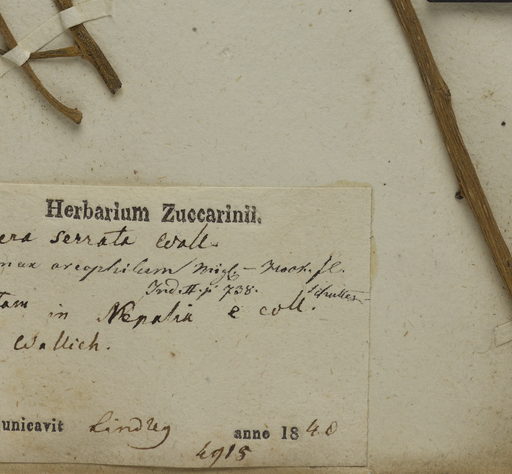 Herbarium Zuccarinii.
era serrata Wall.
max oreophilum Miq. – Hook. fl.
Ind. II p 738.
tam in Nepalia e coll.
Wallich.
unicavit Lindley anno 1840
4915